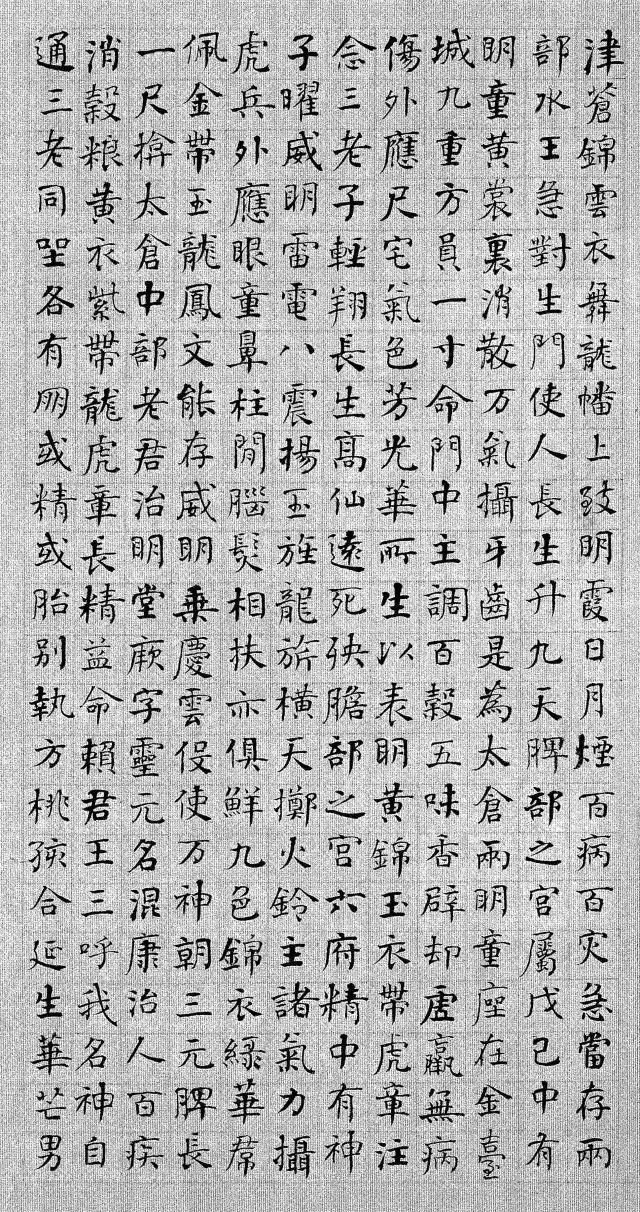 津蒼錦雲衣舞龍幡上致明霞日月煙百病百灾急當存兩
部水王急對生門使人長生升九天脾部之宮屬戊己中有
明童黃裳裏消散万氣攝牙齒是為太倉兩明童座在金臺
城九重方員一寸命門中主調百穀五味香辟却虛羸無病
傷外應尺宅氣色芳光華所生以表明黃錦玉衣帶虎章注
念三老子輕翔長生高仙遠死殃膽部之宮六府精中有神
子曜威明雷電八震揚玉旌龍旂橫天擲火鈴主諸氣力攝
虎兵外應眼童鼻柱間腦髮相扶亦俱鮮九色錦衣綠華帬
佩金帶玉龍鳳文能存威明乗慶雲役使万神朝三元脾長
一尺揜太倉中部老君治明堂厥字靈元名混康治人百疾
消穀粮黃衣紫帶龍虎章長精益命賴君王三呼我名神自
通三老同坐各有朋或精或胎別執方桃孩合延生華芒男